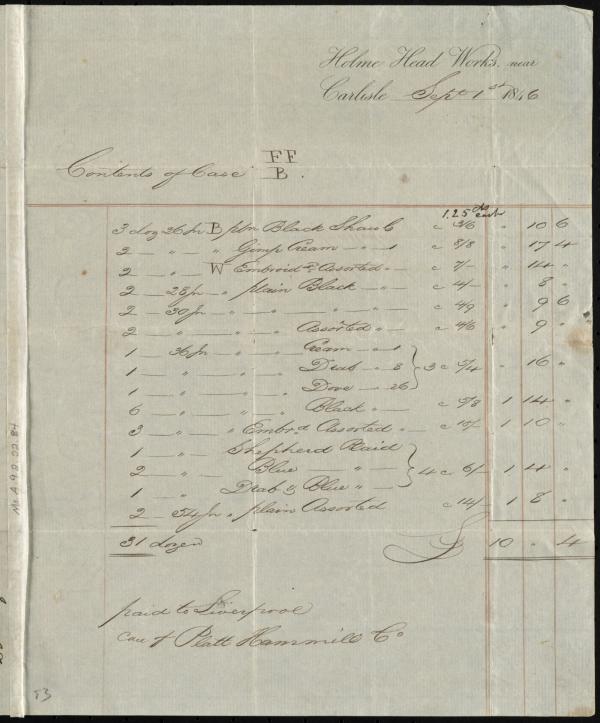 Holme Head Works, near
Carlisle Sept 1st 1846
Contents of Case FF
B
1.25 cts each
3 doz 26 In B pln Black Shawls c 3/6 " 10 6
2 — " — " Gimp Cream — " — 1 c 8/8 — " 17 4
2 — " — W Embroid'd Assorted " — c 7/- — " 14 "
2 — 28 In — " plain Black — " — c 4/- — " 8 "
2 — 30 In — " — " — " — c 4/9 " 9 6
2 " — " Assorted " — c 4/6 " 9 "
1 — 36 In — " — Cream — " 1
1 " " — " — Drab — " 8 } 3 c 5/4 " 16 "
1 " " — " — Dove — 26
6 — " — " — " Black " — c 5/8 1 14 "
3 — " — " Embr'd Assorted " — c 10/- 1 10 "
1 — " — Shepherd Plaid
2 — " — Blue — " — } 4 c 6/- 1 4 "
1 — " Drab & Blue " —
2 — 54 In " plain Assorted c 14/- 1 8 "
31 dozen £ 10 " 4
paid to Liverpool
care of Platt Hammill Co
53